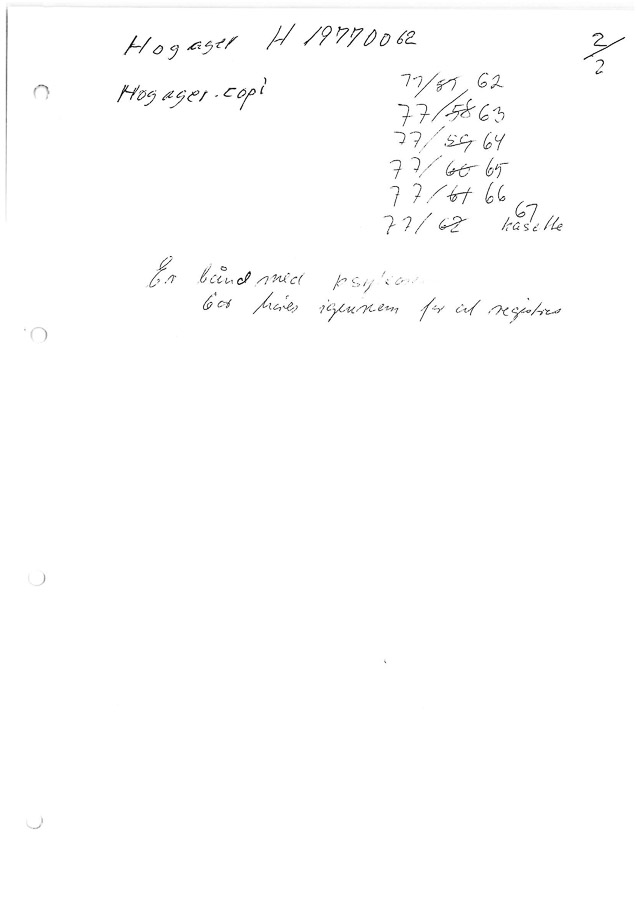 Hogager H 19770062
2/2
Hogager. copi
77/57 62
77/58 63
77/59 64
77/60 65
77/61 66
77/62 67 kasette
En bånd med
bør høres igennem for at registres